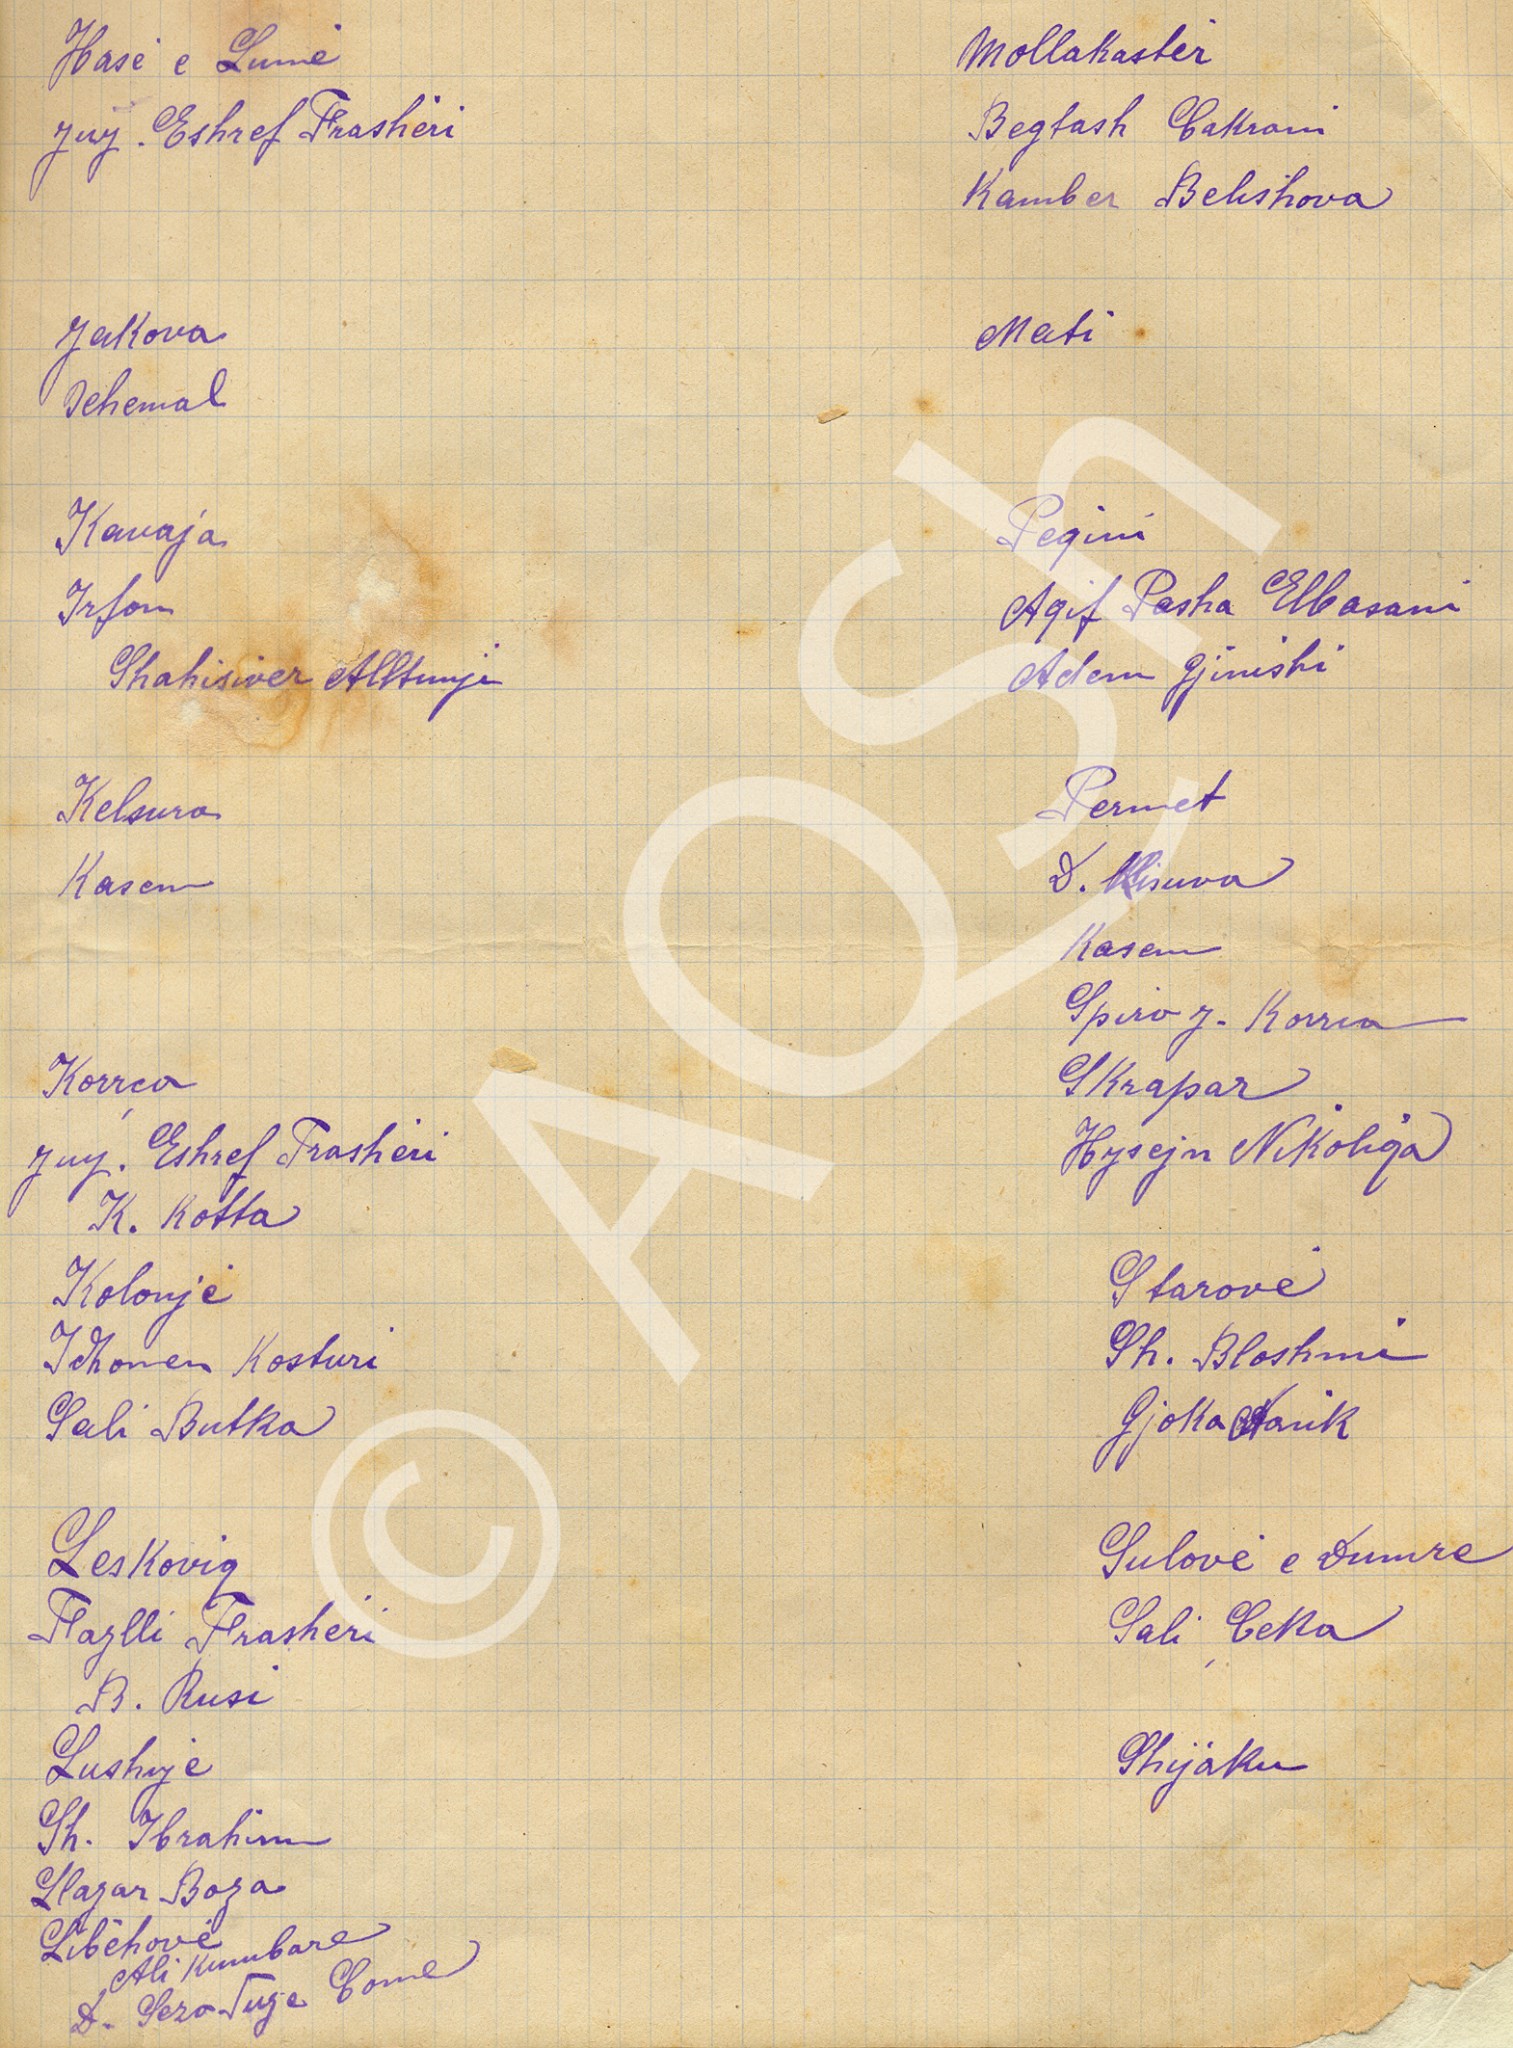 Hasë e Lumë
yuy. Eshref Frashëri
Jakova
Dehemal
Kavaja
Irfan
Shahisiver Alltunji
Kelsura
Kasem
Korrça
yuy. Eshref Frashëri
K. Kotta
Kolonjë
Idhomen Kosturi
Sali Butka
Leskoviq
Fazlli Frashëri
B. Rusi
Lushnjë
Sh. Ibrahim
Llazar Boza
Libëhovë
Ali Kumbare
D. Seza Tuge Come
Mollakastër
Begtash Cakrani
Kamber Belishova
Mati
Peqini
Aqif Pasha Elbasani
Adem Gjinishi
Permet
D.
Kasem
Spiro J. Korrca
Skrapar
Hysejn Nikoliça
Starovë
Sh. Bloshmi
Gjoka
Sulovë e Dumre
Sali Çeka
Shijaku
© AQSH